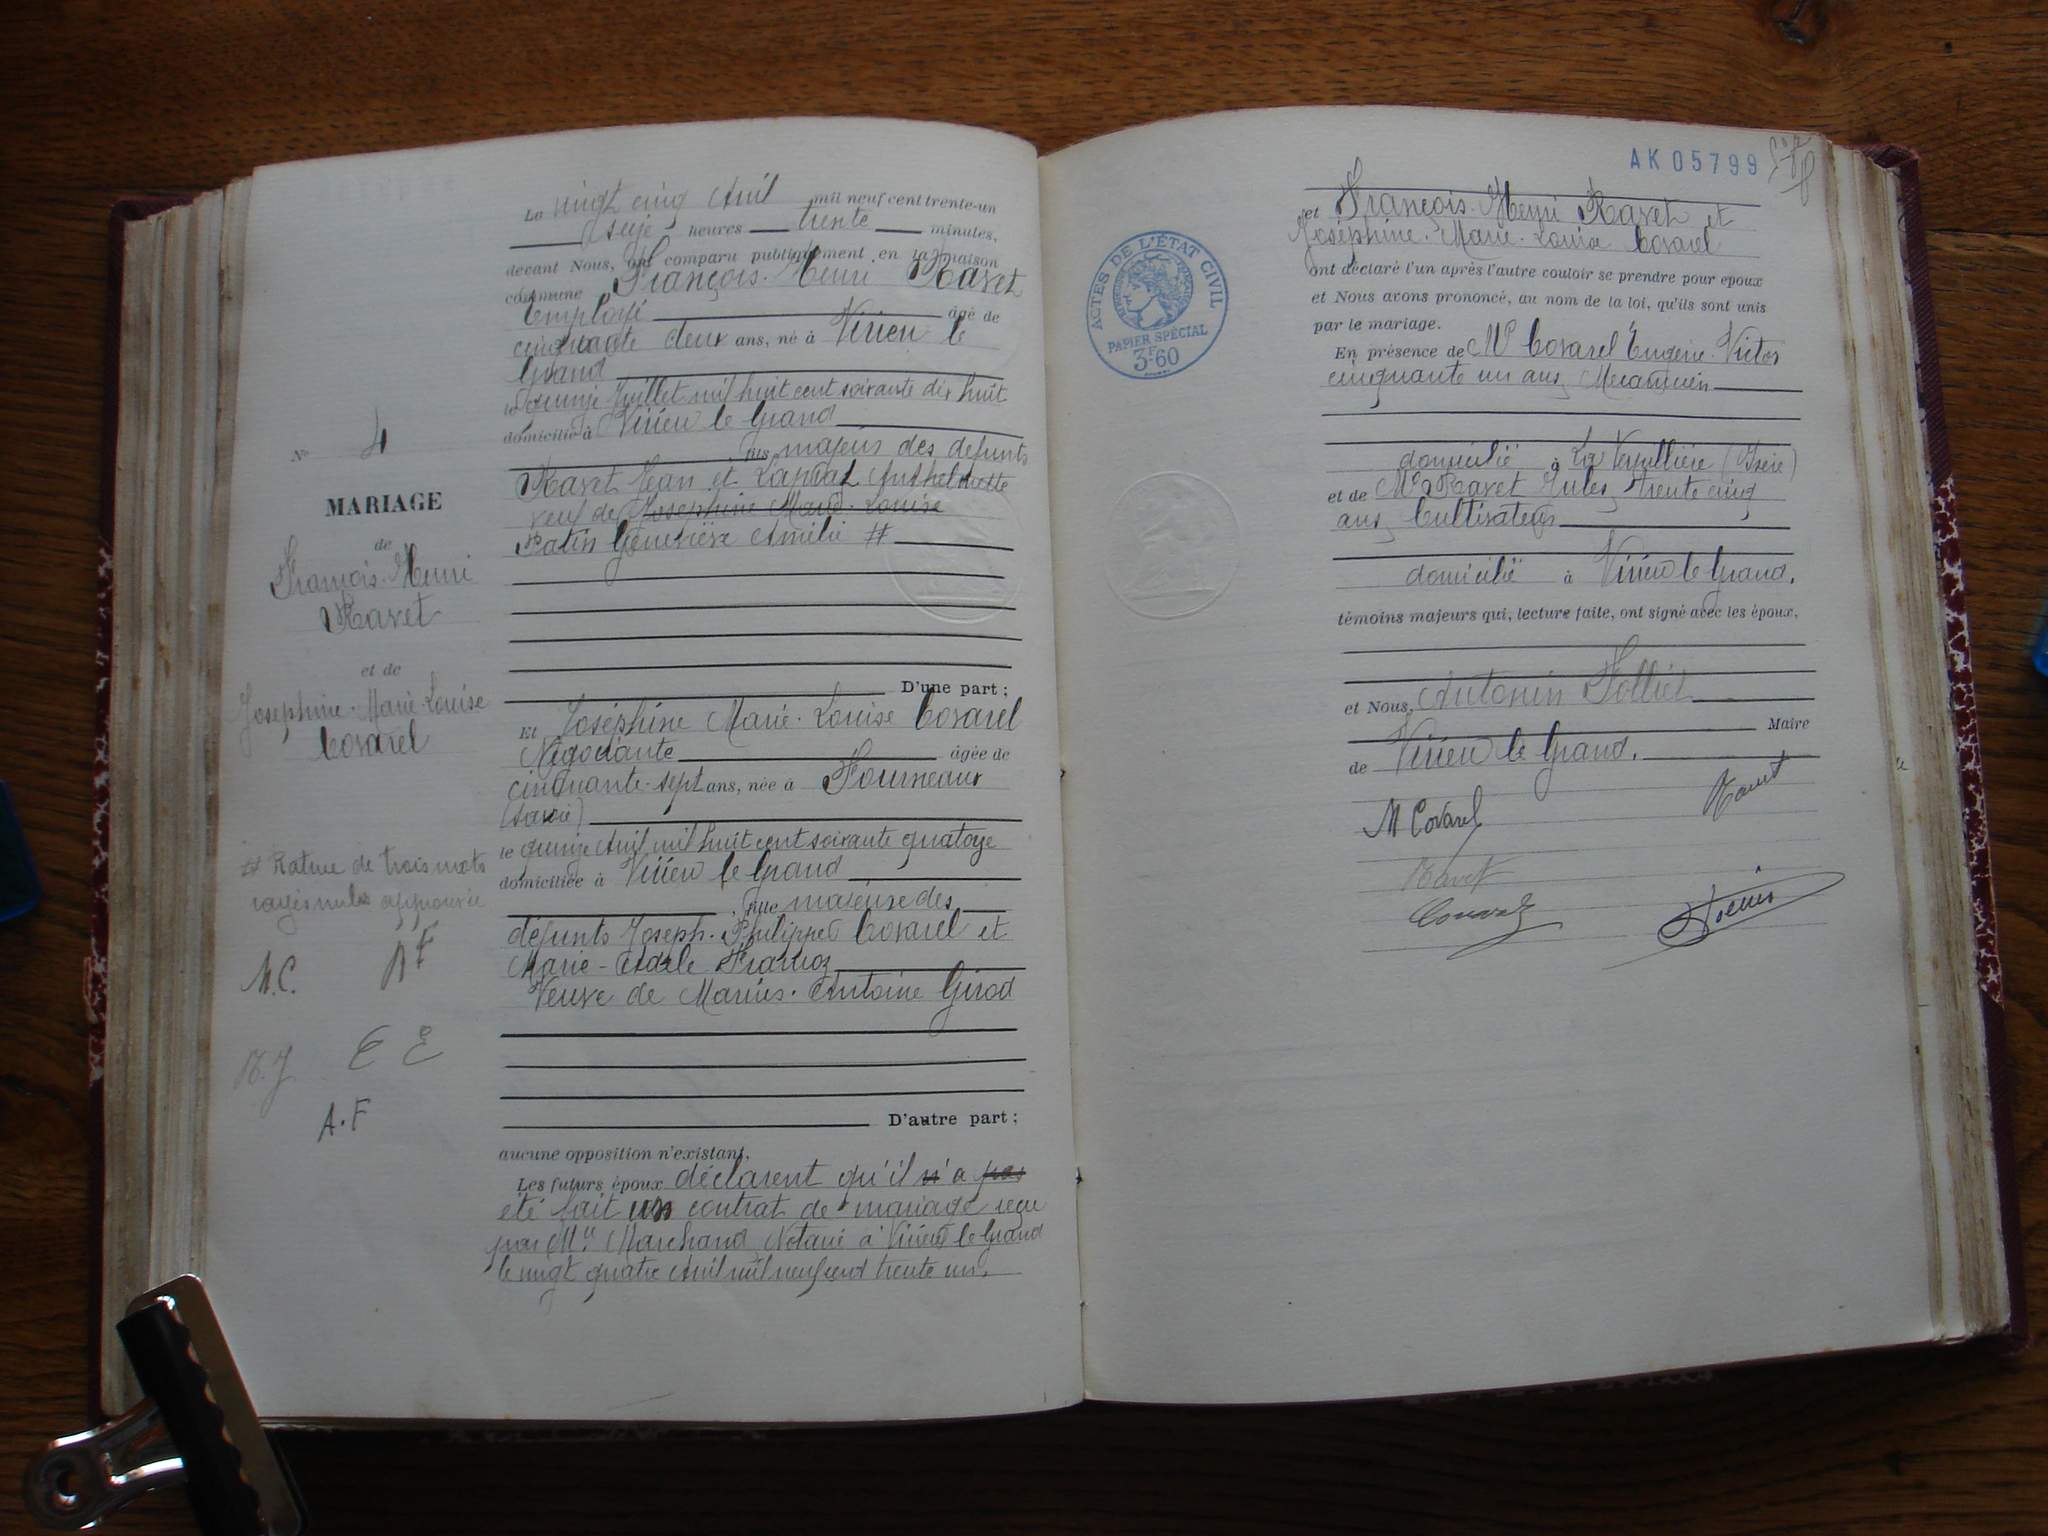 N° 4
MARIAGE
de
François-Henri
Ravet
et de
Joséphine-Marie-Louise
Covarel
# Rature de trois mots
rayés nuls approuvée
M.C. AF
R.J E E
A.F
Le vingt cinq Avril mil neuf cent trente-un
seize heures trente minutes,
devant Nous, ont comparu publiquement en la maison
commune François-Henri Ravet
Employé âgé de
cinquante deux ans, né à Virieu le
Grand
le quinze Juillet mil huit cent soixante dix huit
domicilié à Virieu le Grand
fils majeur des défunts
Ravet Jean et Lapraz Anthelmette
veuf de Joséphine Marie-Louise
Ratin Geneviève Amélie #
D'une part ;
Et Joséphine Marie-Louise Covarel
Négociante âgée de
cinquante-sept ans, née à Fourneaux
(Savoie)
le quinze Avril mil huit cent soixante quatorze
domiciliée à Virieu le Grand
fille majeure des
défunts Joseph-Philippe Covarel et
Marie-Adèle
Veuve de Marius-Antoine Girod
D'autre part ;
aucune opposition n'existant.
Les futurs époux déclarent qu'il n'a pas
été fait un contrat de mariage reçu
par Me Marchand Notaire à Virieu le Grand
le vingt quatre Avril mil neuf cent trente un.
AK 05799
ACTES DE L'ÉTAT CIVIL
PAPIER SPÉCIAL
3F60
et François-Henri Ravet et
Joséphine-Marie-Louise Covarel
ont déclaré l'un après l'autre vouloir se prendre pour époux
et Nous avons prononcé, au nom de la loi, qu'ils sont unis
par le mariage.
En présence de Mr Covarel Eugène-Victor
cinquante un ans, Mécanicien
domicilié à La Verpillière (Isère)
et de Mr Ravet Jules, trente cinq
ans, Cultivateur
domicilié à Virieu le Grand.
témoins majeurs qui, lecture faite, ont signé avec les époux,
et Nous, Antonin Folliet
Maire
de Virieu le Grand.
M Covarel Ravet
Ravet